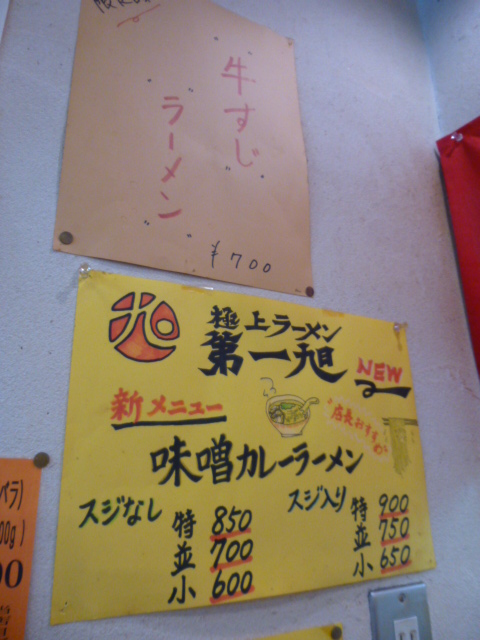 "牛すじ"
"ラーメン"
¥700
旭
極上ラーメン
第一旭
NEW
新メニュー
店長おすすめ
味噌カレーラーメン
スジなし
特 850
並 700
小 600
スジ入り
特 900
並 750
小 650
バラ)
00g)
00